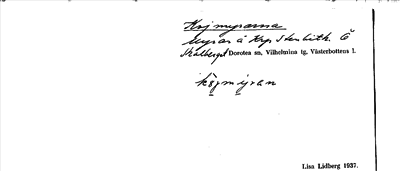 Kojmyrarna
myrar å Krp. Stenbith. Ö
Skalberget Dorotea sn, Vilhelmina tg, Västerbottens l.
köjmýran
Lisa Lidberg 1937.